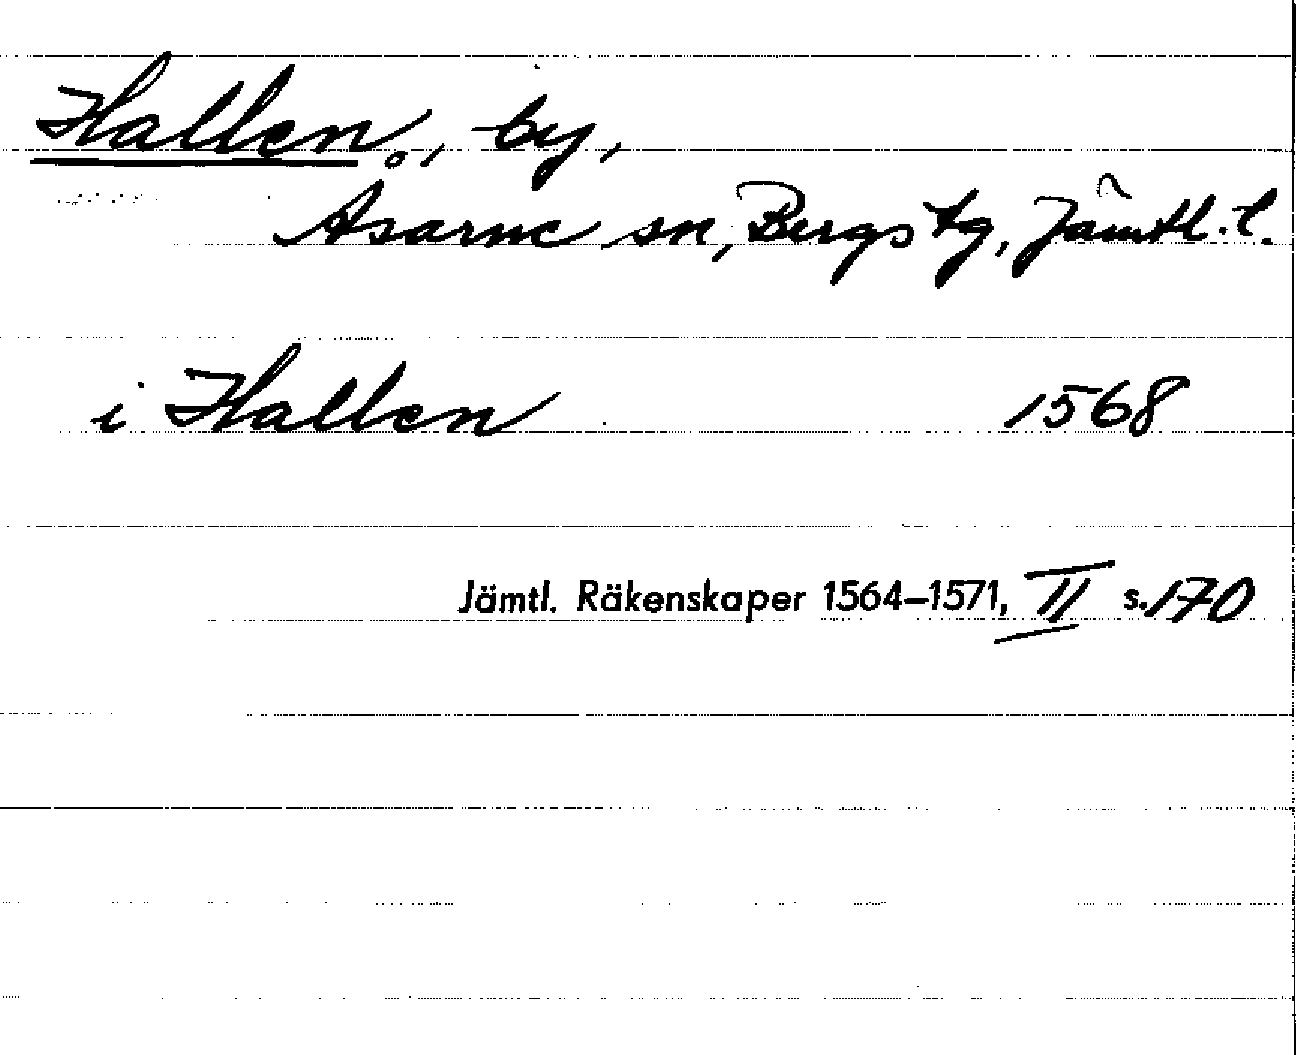 Hallen, by,
Åsarne sn, Bergs tg, Jämtl. l.
i Hallen 1568
Jämtl. Räkenskaper 1564–1571, II s. 170